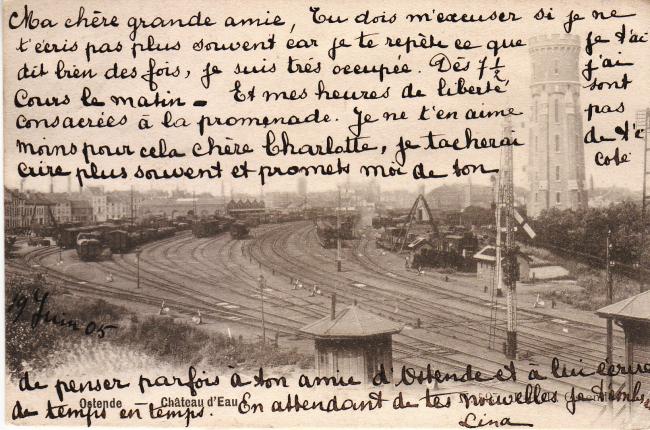 Ma chère grande amie, Tu dois m'excuser si je ne
t'écris pas plus souvent car je te repète ce que je t'ai
dit bien des fois, je suis trés occupée. Dès 7½ j'ai
Cours le matin - Et mes heures de liberté sont
consacrées à la promenade. Je ne t'en aime pas
moins pour cela chère Charlotte, je tacherai de t'é
crire plus souvent et promets moi de ton coté
19 Juin 05
de penser parfois à ton amie d'Ostende et à lui écrire
Ostende — Château d'Eau
de temps en temps. En attendant de tes nouvelles je
Lina